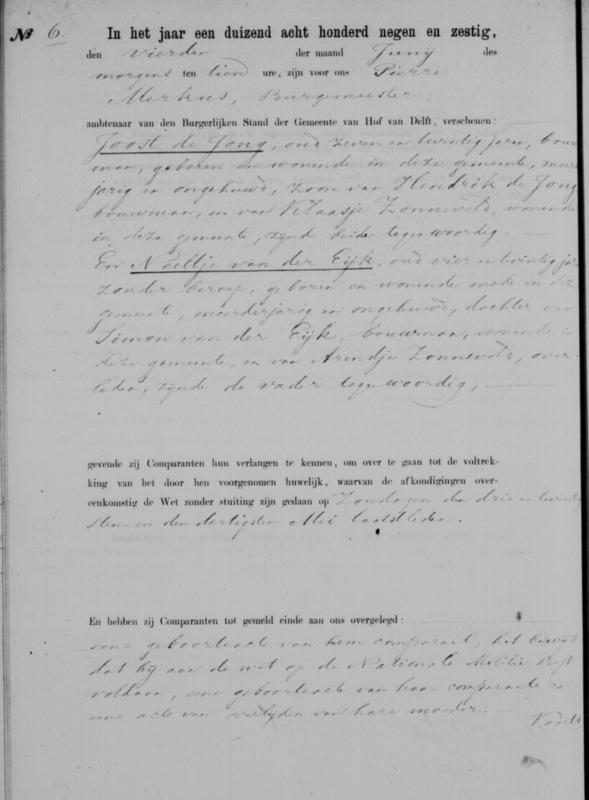 No 6. In het jaar een duizend acht honderd negen en zestig,
den vierden der maand Junij des
morgens ten tien ure, zijn voor ons Pierre
Merkus, Burgemeester,
ambtenaar van den Burgerlijken Stand der Gemeente van Hof van Delft, verschenen:
Joost de Jong, oud zeven en twintig jaren, bouw
man, geboren en wonende in deze gemeente, meer
jarig en ongehuwd, zoon van Hendrik de Jong
bouwman, en van Klaasje Zonneveld, wonende
in deze gemeente, zijnde beide tegenwoordig.
En Neeltje van der Eijk, oud vier en twintig ja
zonder beroep, geboren en wonende mede in deze
gemeente, meerderjarig en ongehuwd, dochter van
Simon van der Eijk, bouwman, wonende in
deze gemeente, en van Arendje Zonneveld, over-
leden, zijnde de vader tegenwoordig,
gevende zij Comparanten hun verlangen te kennen, om over te gaan tot de voltrek-
king van het door hen voorgenomen huwelijk, waarvan de afkondigingen over-
eenkomstig de Wet zonder stuiting zijn gedaan op Zondagen den drie en twintig
sten en den dertigsten Mei laatstleden.
En hebben zij Comparanten tot gemeld einde aan ons overgelegd:
eene geboorteacte van hem comparant, het bewijs
dat hij aan de wet op de Nationale Militie heeft
voldaan, eene geboorteacte van haar comparante en
eene acte van overlijden van hare moeder.